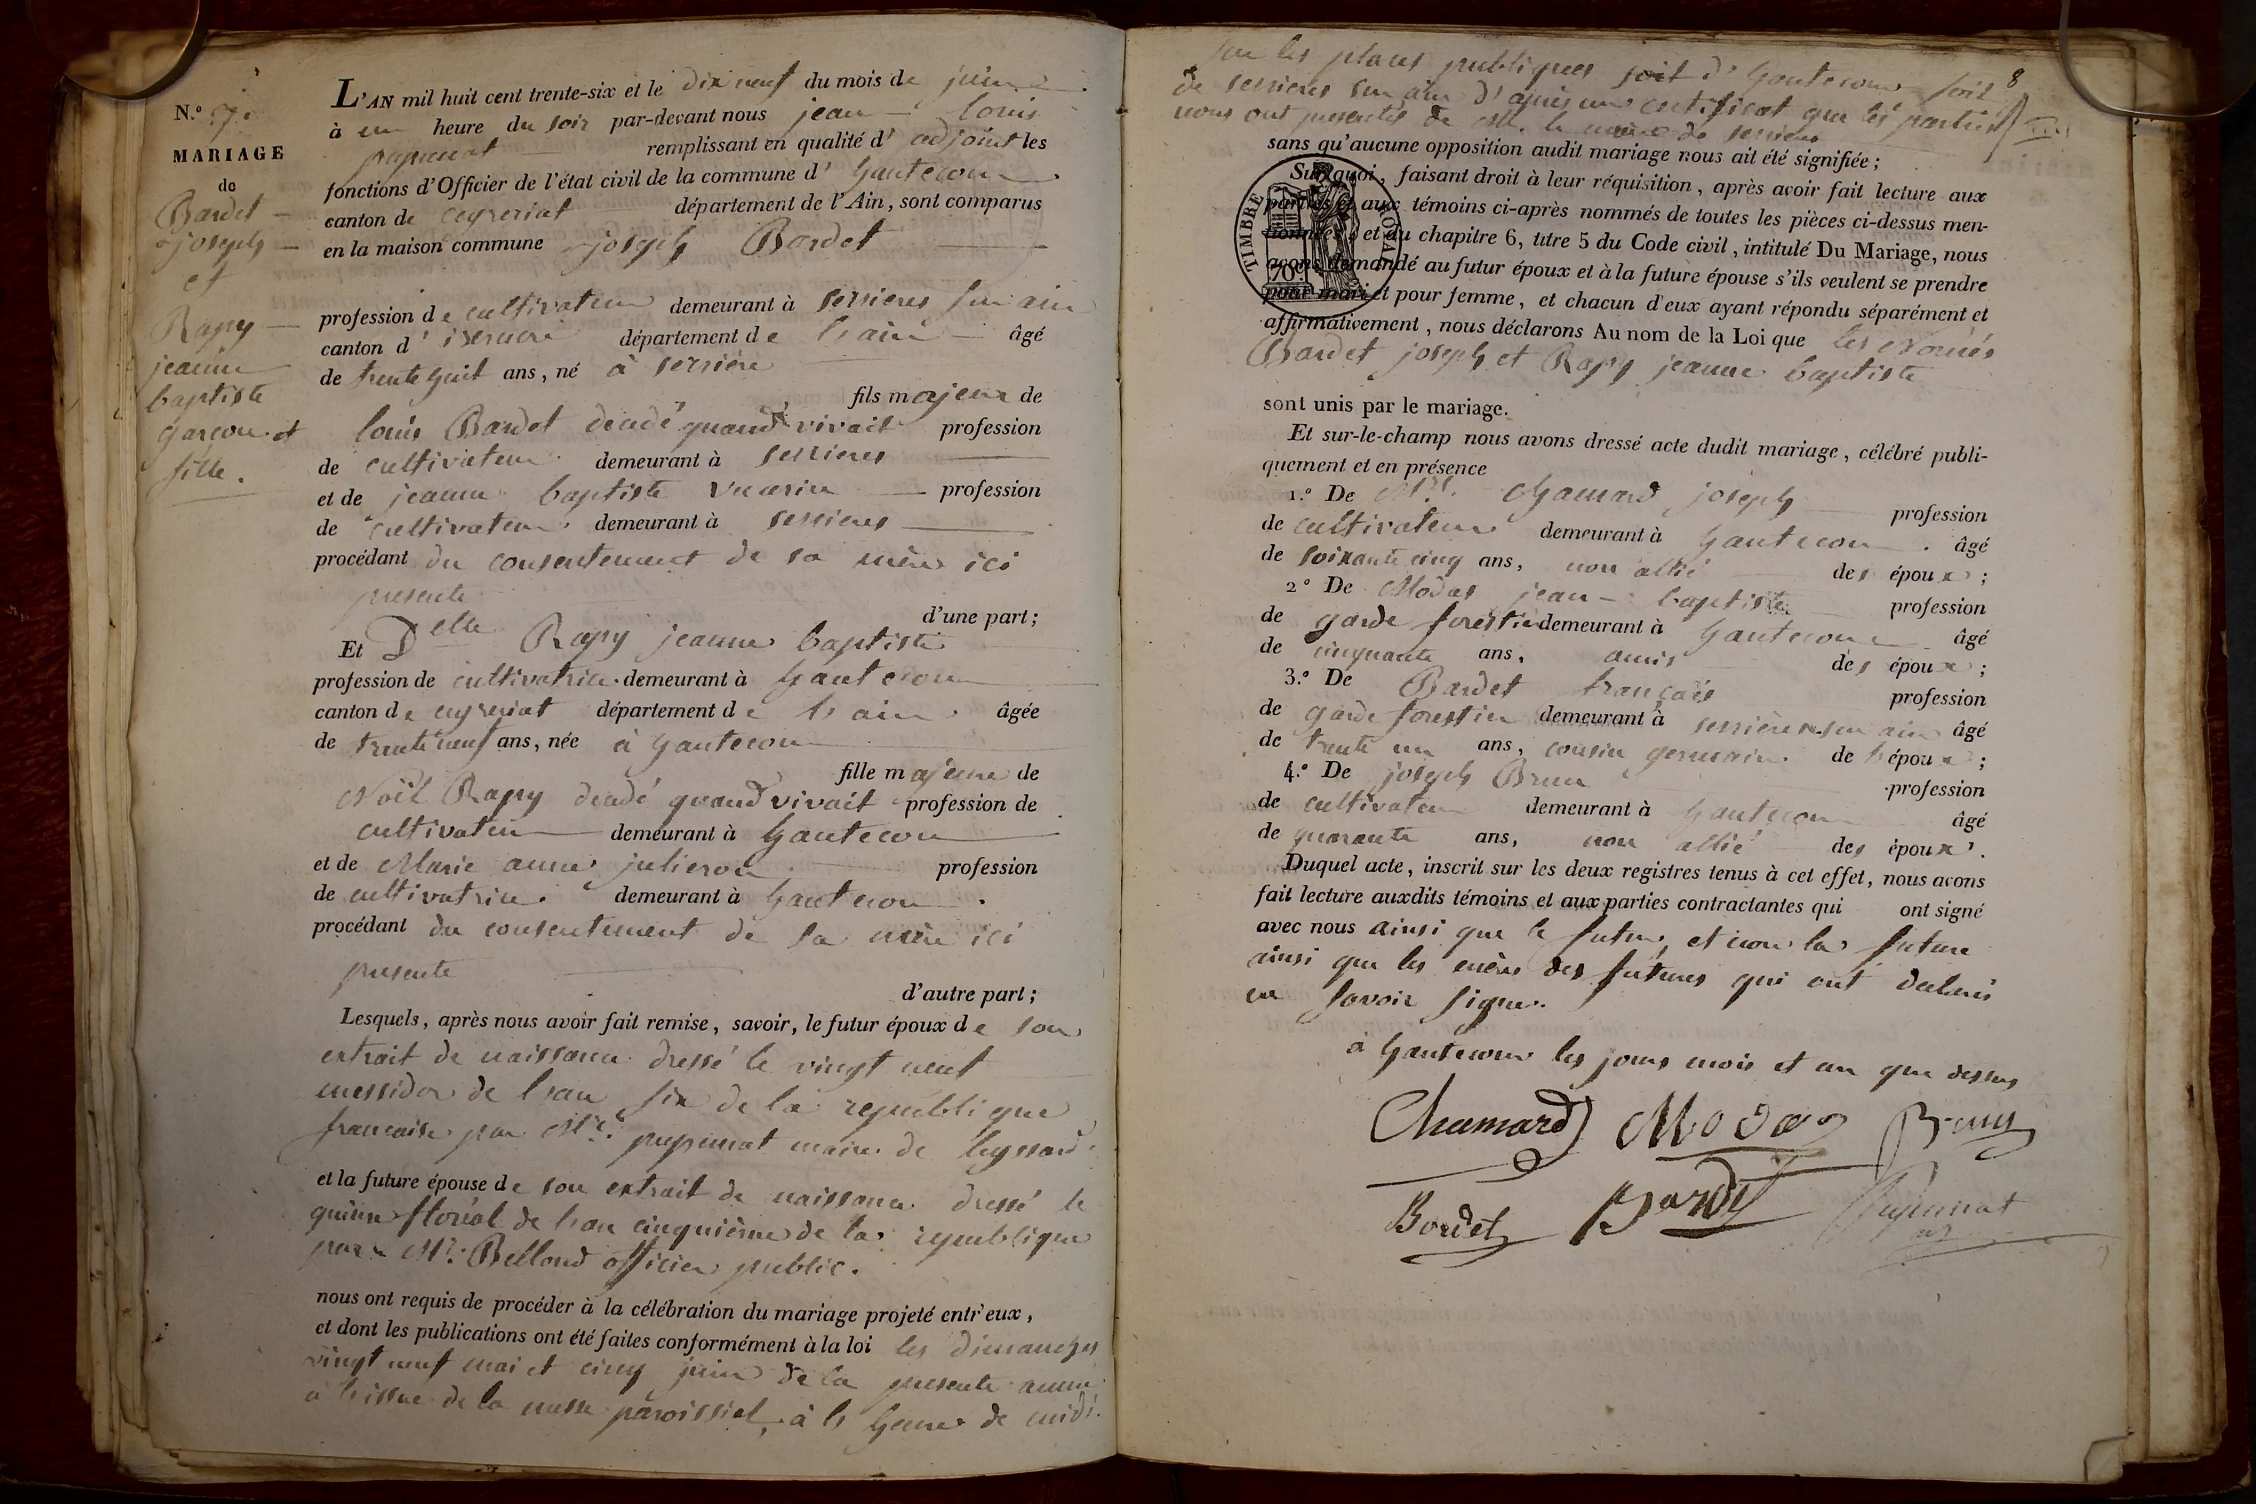 N.º 7.
MARIAGE
de
Bardet
joseph
et
Rapy
jeanne
baptiste
garçon et
fille.
L'AN mil huit cent trente-six et le dix neuf du mois de juin
à une heure du soir par-devant nous jean louis
pupunat remplissant en qualité d' adjoint les
fonctions d'Officier de l'état civil de la commune d' hautecour
canton de ceyzeriat département de l'Ain, sont comparus
en la maison commune joseph Bardet
profession de cultivateur demeurant à serrieres sur ain
canton d' isernore département de l'ain âgé
de trente huit ans, né à serriere
fils majeur de
louis Bardet décédé quand vivait profession
de cultivateur demeurant à serrieres
et de jeanne baptiste profession
de cultivateur demeurant à serrieres
procédant du consentement de sa mère ici
presente
d'une part;
Et Delle Rapy jeanne baptiste
profession de cultivatrice demeurant à hautecour
canton de ceyzeriat département de l'ain âgée
de trente neuf ans, née à hautecour
fille majeure de
Noël Rapy décédé quand vivait profession de
cultivateur demeurant à hautecour
et de Marie anne julieron profession
de cultivatrice demeurant à hautecour
procédant du consentement de sa mère ici
presente
d'autre part;
Lesquels, après nous avoir fait remise, savoir, le futur époux de son
extrait de naissance dressé le vingt neuf
messidor de l'an six de la republique
francaise par Mr. pupunat maire de leyssard
et la future épouse de son extrait de naissance dressé le
quinze floréal de l'an cinquième de la republique
par Mr. Belloud officier public.
nous ont requis de procéder à la célébration du mariage projeté entr'eux,
et dont les publications ont été faites conformément à la loi les dimanches
vingt neuf mai et cinq juin de la presente année
à l'issue de la messe paroissial, à l'heure de midi
8
sur les places publiques soit d'hautecour soit
de serrieres sur ain d'après un certificat que les parties
nous ont presentés de Mr. le maire de serrieres
sans qu'aucune opposition audit mariage nous ait été signifiée;
TIMBRE ROYAL
Sur quoi, faisant droit à leur réquisition, après avoir fait lecture aux
parties et aux témoins ci-après nommés de toutes les pièces ci-dessus men-
tionnées, et du chapitre 6, titre 5 du Code civil, intitulé Du Mariage, nous
avons demandé au futur époux et à la future épouse s'ils veulent se prendre
pour mari et pour femme, et chacun d'eux ayant répondu séparément et
affirmativement, nous déclarons Au nom de la Loi que les només
Bardet joseph et Rapy jeanne baptiste
sont unis par le mariage.
Et sur-le-champ nous avons dressé acte dudit mariage, célébré publi-
quement et en présence
1.º De Mr. Chamard joseph profession
de cultivateur demeurant à hautecour âgé
de soixante cinq ans, non allié des époux;
2º De Modas jean baptiste profession
de garde forestier demeurant à hautecour âgé
de cinquante ans, amis des époux;
3.º De Bardet français profession
de garde forestier demeurant à serrieres sur ain âgé
de trente un ans, cousin germain de l'époux;
4.º De joseph Brun profession
de cultivateur demeurant à hautecour âgé
de quarante ans, non allié des époux.
Duquel acte, inscrit sur les deux registres tenus à cet effet, nous avons
fait lecture auxdits témoins et aux parties contractantes qui ont signé
avec nous ainsi que le futur, et non la future
ainsi que les mères des futures qui ont déclarés
ne savoir signer.
à hautecour les jours mois et an que dessus
Chamard Modas Brun
Bordet Bardet Pupunat
adt